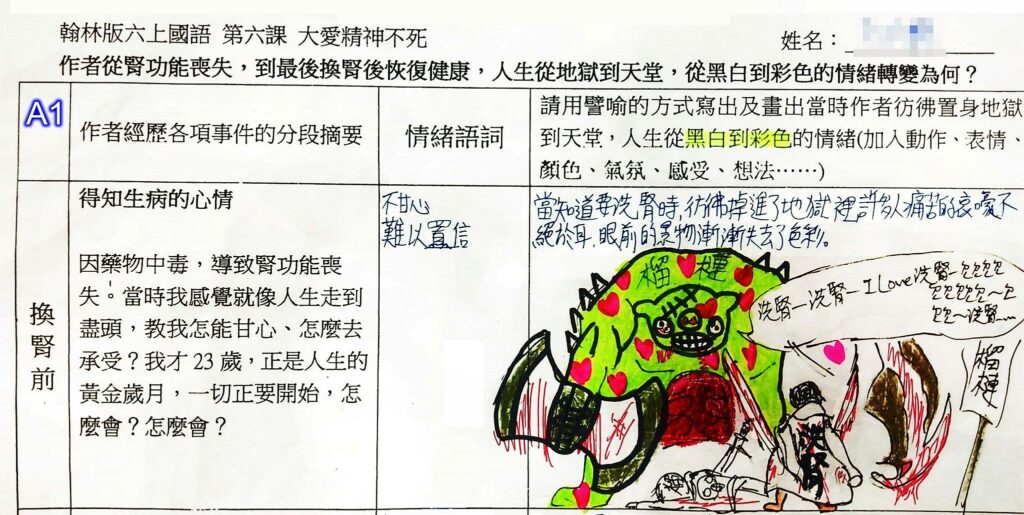 翰林版六上國語 第六課 大愛精神不死
姓名：
作者從腎功能喪失，到最後換腎後恢復健康，人生從地獄到天堂，從黑白到彩色的情緒轉變為何？
A1
作者經歷各項事件的分段摘要
情緒語詞
請用譬喻的方式寫出及畫出當時作者彷彿置身地獄
到天堂，人生從黑白到彩色的情緒(加入動作、表情、
顏色、氣氛、感受、想法⋯⋯)
換腎前
得知生病的心情
因藥物中毒，導致腎功能喪
失。當時我感覺就像人生走到
盡頭，教我怎能甘心、怎麼去
承受？我才 23 歲，正是人生的
黃金歲月，一切正要開始，怎
麼會？怎麼會？
不甘心
難以置信
當知道要洗腎時，彷彿掉進了地獄裡，許多人痛苦的哀嚎不
絕於耳，眼前的景物漸漸失去了色彩。
榴槤
洗腎—洗腎—I Love洗腎
洗腎
榴槤
洗腎